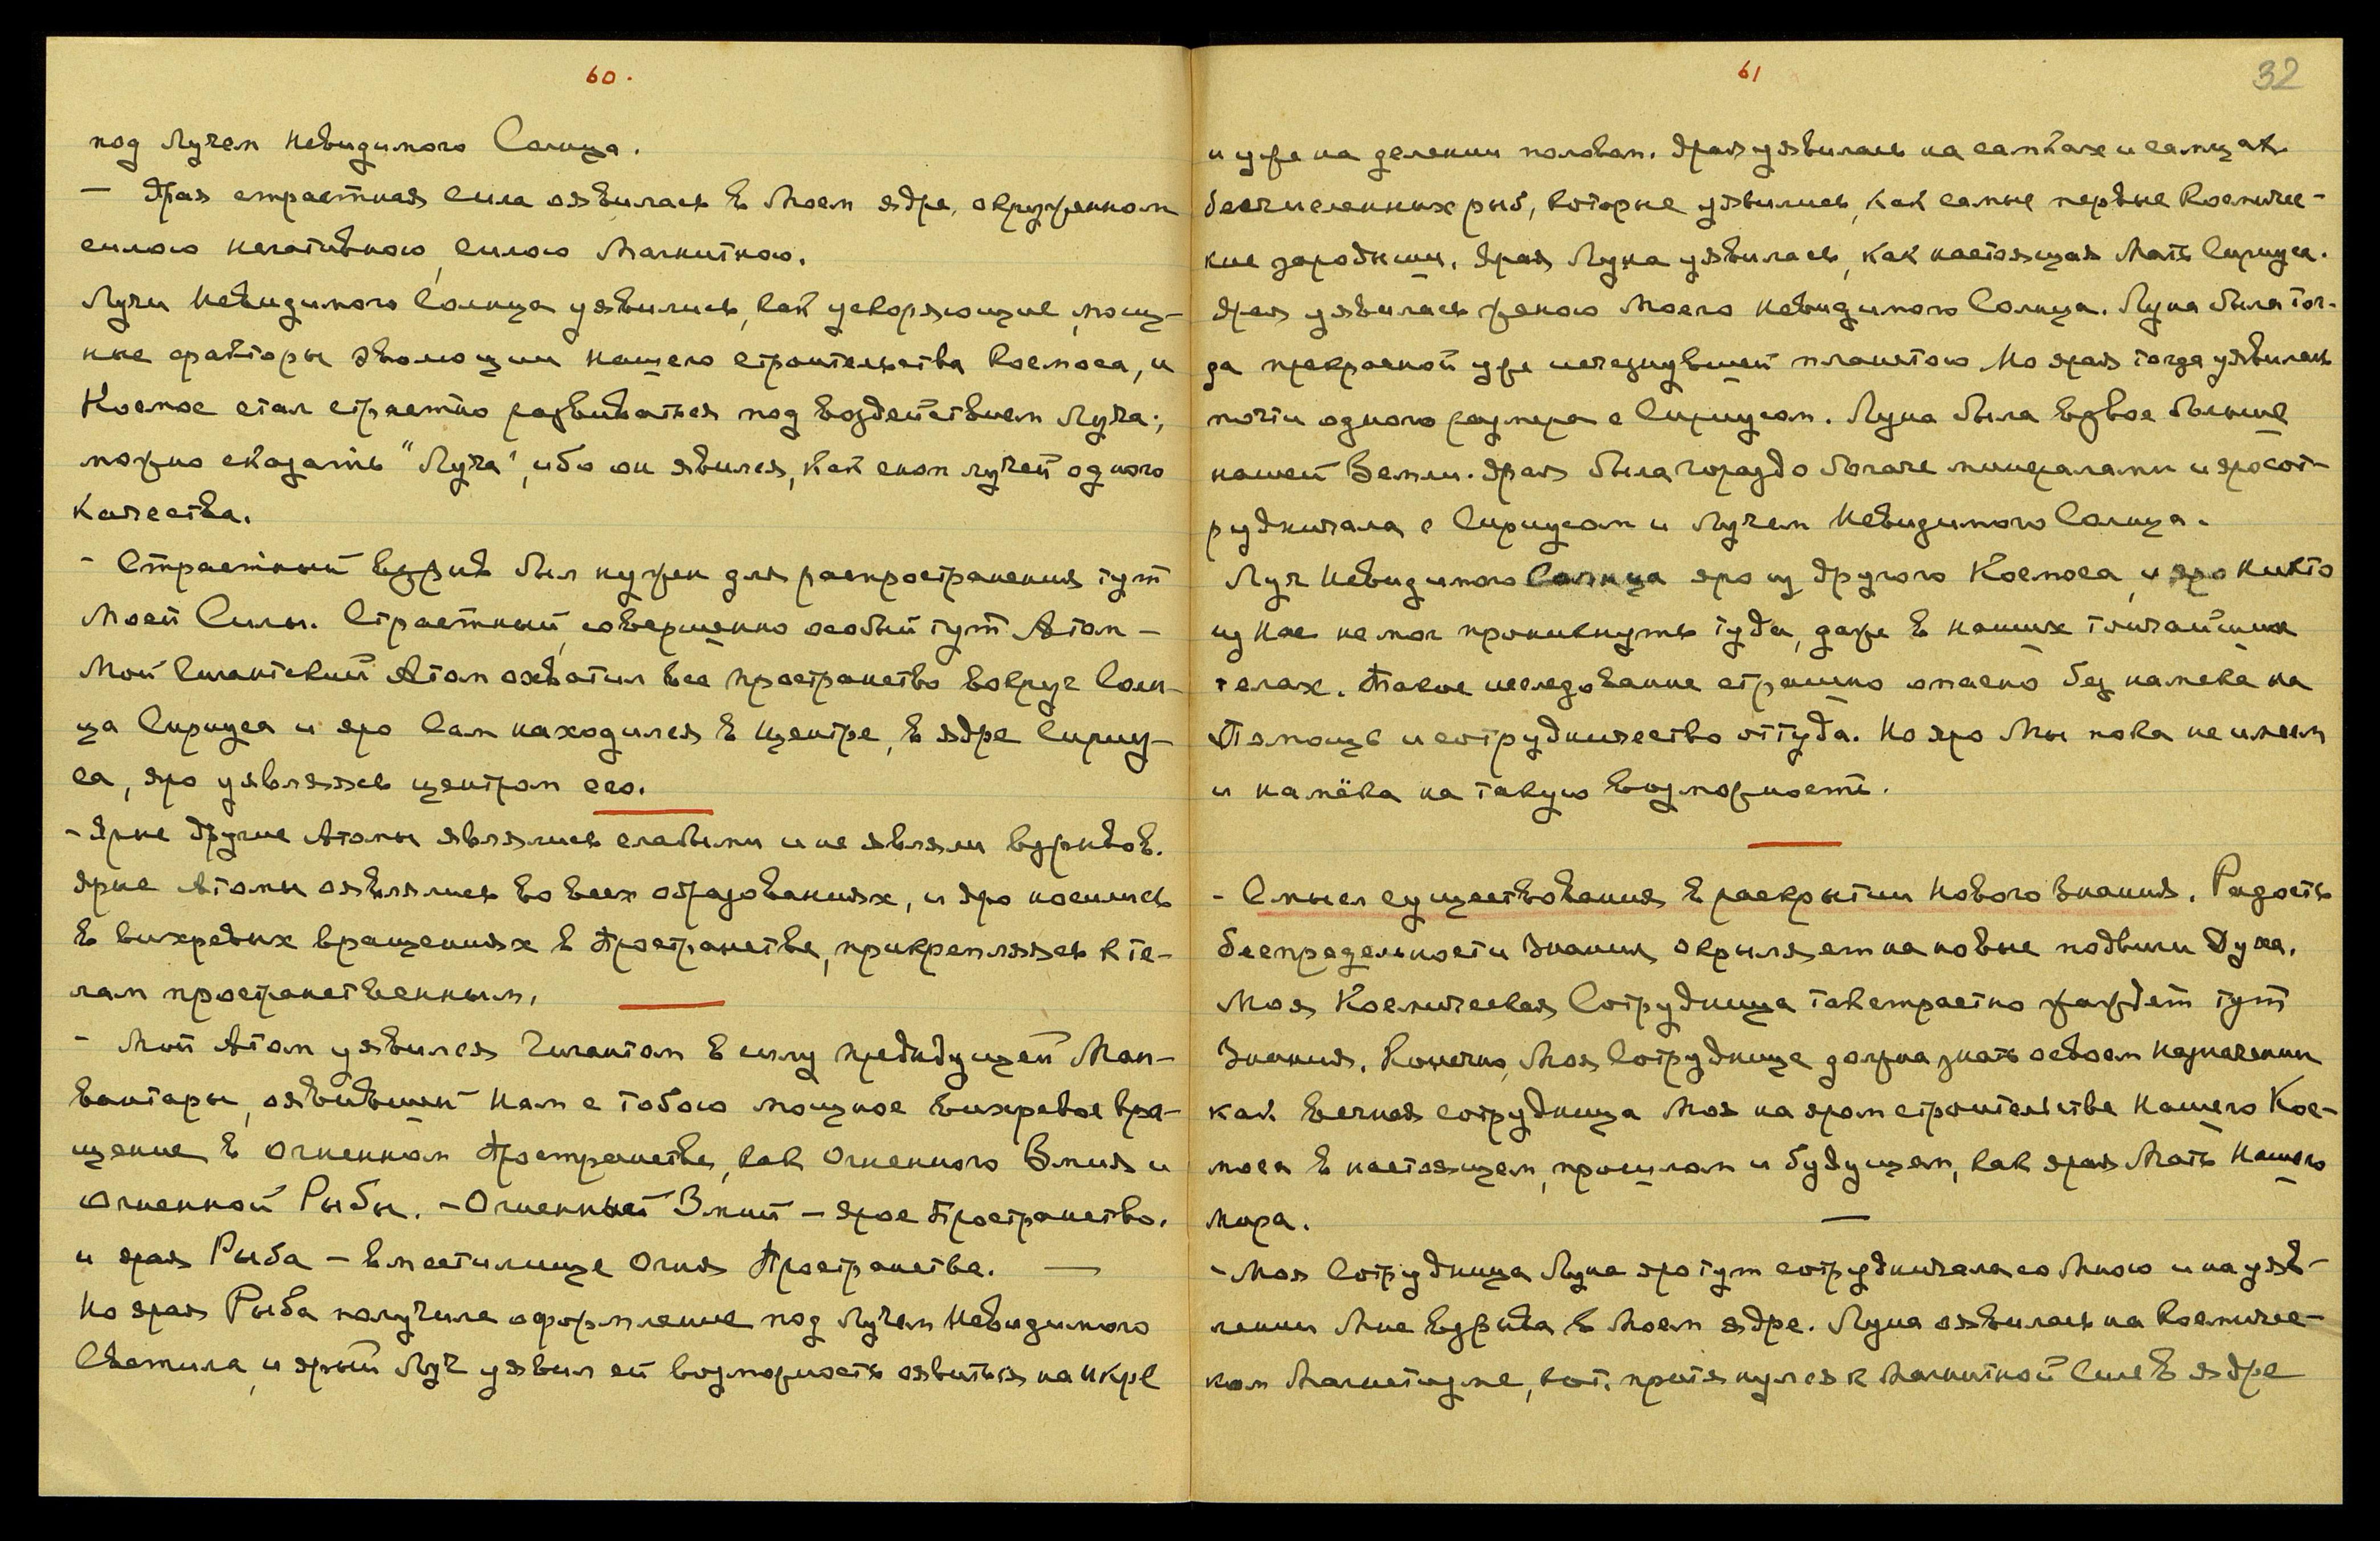 60.
под Лучем Невидимого Солнца.
— Ярая страстная сила оявилась в Моем ядре, окруженном
силою негативною, силою Магнитною.
Лучи Невидимого Солнца уявились, как ускоряющие, мощ-
ные факторы эволюции нашего строительства Космоса, и
Космос стал страстно развиваться под воздействием Луча;
можно сказать "Луча", ибо он явился, как сноп лучей одного
качества.
- Страстный взрыв был нужен для распространения тут
Моей Силы. Страстный, совершенно особый тут Атом —
Мой Гигантский Атом охватил все пространство вокруг Солн-
ца Сириуса и яро Сам находился в центре, в ядре Сириу-
са, яро уявляясь центром его.
- Ярые другие Атомы являлись слабыми и не являли взрывов.
Ярые Атомы оявлялись во всех образованиях, и яро носились
в вихревых вращениях в Пространстве, прикрепляясь к те-
лам пространственным.
- Мой Атом уявился Гигантом в силу предыдущей Ман-
вантары, оявившей нам с тобою мощное вихревое вра-
щение в Огненном Пространстве, как Огненного Змия и
Огненной Рыбы. - Огненный Змий — ярое Пространство.
и ярая Рыба — вместилище Огня Пространства. —
Но ярая Рыба получила оформление под Лучем Невидимого
Светила, и ярый Луч уявил ей возможность оявиться на икре
61
32
и уже на делении полов. Ярая уявилась на самках и самцах
бесчисленных рыб, которые уявились, как самые первые Космичес-
кие зародыши. Ярая Луна уявилась, как настоящая Мать Сириуса.
Ярая уявилась женою Моего Невидимого Солнца. Луна была тог-
да прекрасной уже исчезнувшей планетою. Но ярая тогда уявилась
почти одного размера с Сириусом. Луна была вдвое больше
нашей Земли. Ярая была гораздо богаче минералами и яро сот-
рудничала с Сириусом и Лучем Невидимого Солнца.
Луч Невидимого Солнца яро из другого Космоса, и яро никто
из нас не мог проникнуть туда, даже в наших тончайших
телах. Такое исследование страшно опасно без намека на
Помощь и сотрудничество оттуда. Но яро Мы пока не имеем
и намёка на такую возможность.
- Смысл существования в раскрытии Нового Знания. Радость
беспредельности Знания окрыляет на новые подвиги Духа.
Моя Космическая Сотрудница так страстно жаждет тут
Знания. Конечно, Моя Сотрудница должна знать о своем назначении
как вечная сотрудница Моя на яром строительстве Нашего Кос-
моса в настоящем, прошлом и будущем, как ярая Мать Нашего
Мира. —
- Моя Сотрудница Луна яро тут сотрудничала со Мною и на уяв-
лении Мне взрыва в Моем ядре. Луна оявилась на Космичес-
ком Магнетизме, кот. притянулся к Магнитной Силе в ядре